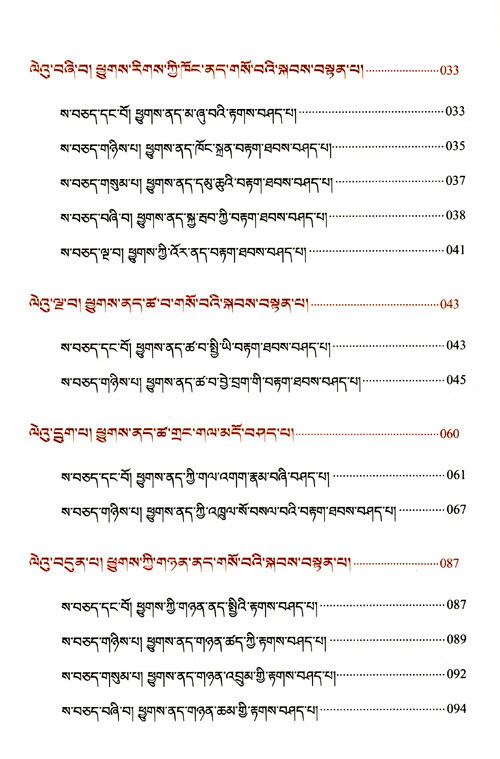 ལེའུ་བཞི་བ། ཕྱུགས་རིགས་ཀྱི་ཁོང་ནད་གསོ་བའི་སྐབས་བསྟན་པ། 033
ས་བཅད་དང་པོ། ཕྱུགས་ནད་མ་ཞུ་བའི་རྟགས་བཤད་པ། 033
ས་བཅད་གཉིས་པ། ཕྱུགས་ནད་ཁོང་སྐྲན་བརྟག་ཐབས་བཤད་པ། 035
ས་བཅད་གསུམ་པ། ཕྱུགས་ནད་དམུ་ཆུའི་བརྟག་ཐབས་བཤད་པ། 037
ས་བཅད་བཞི་བ། ཕྱུགས་ནད་སྐྱ་རབ་ཀྱི་བརྟག་ཐབས་བཤད་པ། 038
ས་བཅད་ལྔ་བ། ཕྱུགས་ཀྱི་འོར་ནད་བརྟག་ཐབས་བཤད་པ། 041
ལེའུ་ལྔ་བ། ཕྱུགས་ནད་ཚ་བ་གསོ་བའི་སྐབས་བསྟན་པ། 043
ས་བཅད་དང་པོ། ཕྱུགས་ནད་ཚ་བ་སྤྱི་ཡི་བརྟག་ཐབས་བཤད་པ། 043
ས་བཅད་གཉིས་པ། ཕྱུགས་ནད་ཚ་བ་བྱེ་བྲག་གི་བརྟག་ཐབས་བཤད་པ། 045
ལེའུ་དྲུག་པ། ཕྱུགས་ནད་ཚ་གྲང་གལ་མདོ་བཤད་པ། 060
ས་བཅད་དང་པོ། ཕྱུགས་ནད་ཀྱི་གལ་འགག་རྣམ་བཞི་བཤད་པ། 061
ས་བཅད་གཉིས་པ། ཕྱུགས་ནད་ཀྱི་འཁྲུལ་སོ་བསལ་བའི་བརྟག་ཐབས་བཤད་པ། 067
ལེའུ་བདུན་པ། ཕྱུགས་ཀྱི་གཉན་ནད་གསོ་བའི་སྐབས་བསྟན་པ། 087
ས་བཅད་དང་པོ། ཕྱུགས་ཀྱི་གཉན་ནད་སྤྱིའི་རྟགས་བཤད་པ། 087
ས་བཅད་གཉིས་པ། ཕྱུགས་ནད་གཉན་ཚད་ཀྱི་རྟགས་བཤད་པ། 089
ས་བཅད་གསུམ་པ། ཕྱུགས་ནད་གཉན་འབྲུམ་གྱི་རྟགས་བཤད་པ། 092
ས་བཅད་བཞི་བ། ཕྱུགས་ནད་གཉན་ཆམ་གྱི་རྟགས་བཤད་པ། 094